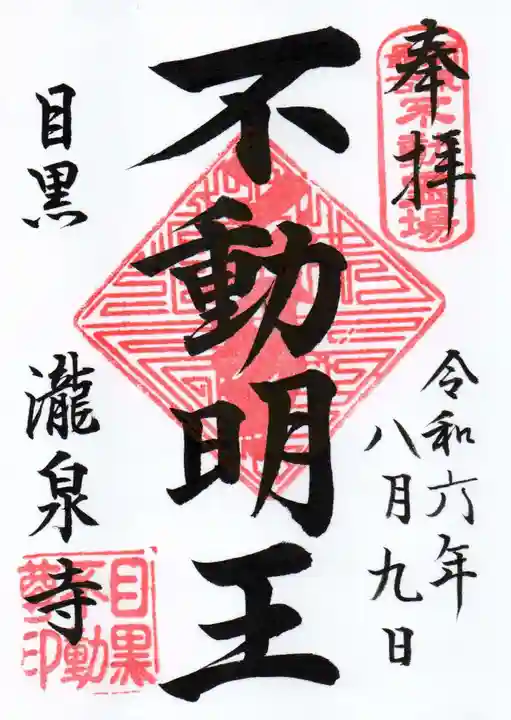 奉拝
不動霊場
令和六年
八月九日
不動明王
目黒
瀧泉寺
目黒
不動
尊印